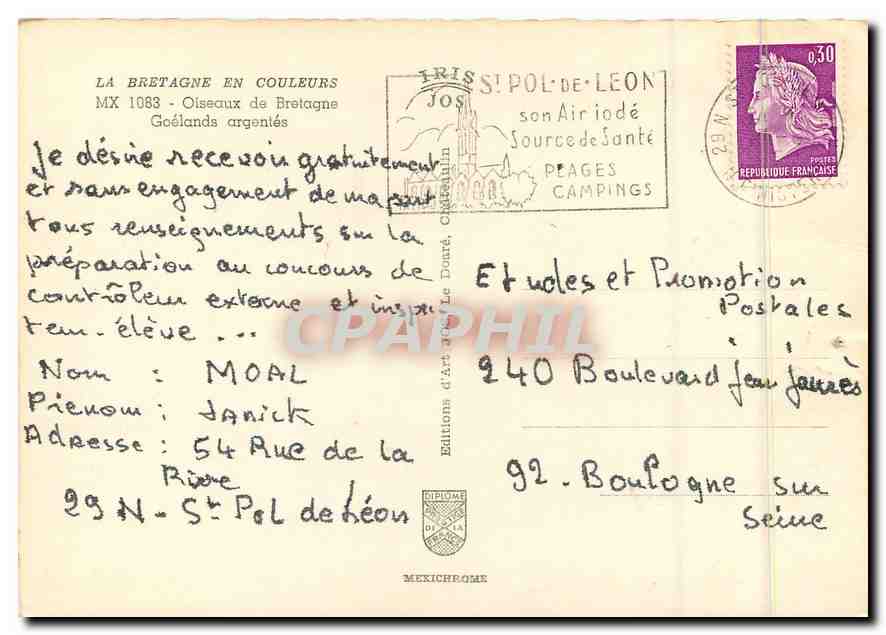 LA BRETAGNE EN COULEURS
MX 1083 - Oiseaux de Bretagne
Goélands argentés
IRIS
JOS
St POL·DE·LEON
son Air iodé
Source de Santé
PLAGES
CAMPINGS
0,30
POSTES
REPUBLIQUE FRANÇAISE
29 N
Je désire recevoir gratuitement
et sans engagement de ma part
tous renseignements sur la
préparation au concours de
contrôleur externe et inspec
teur-élève ...
Nom : MOAL
Prénom : JANICK
Adresse : 54 Rue de la
Rive
29 N - St Pol de Léon
Editions d'Art JOS Le Doaré, Châteaulin
Etudes et Promotion
Postales
240 Boulevard Jean Jaurès
92 - Boulogne sur
Seine
DIPLOME
DE LA
FRANCE
MEXICHROME
CPAPHIL